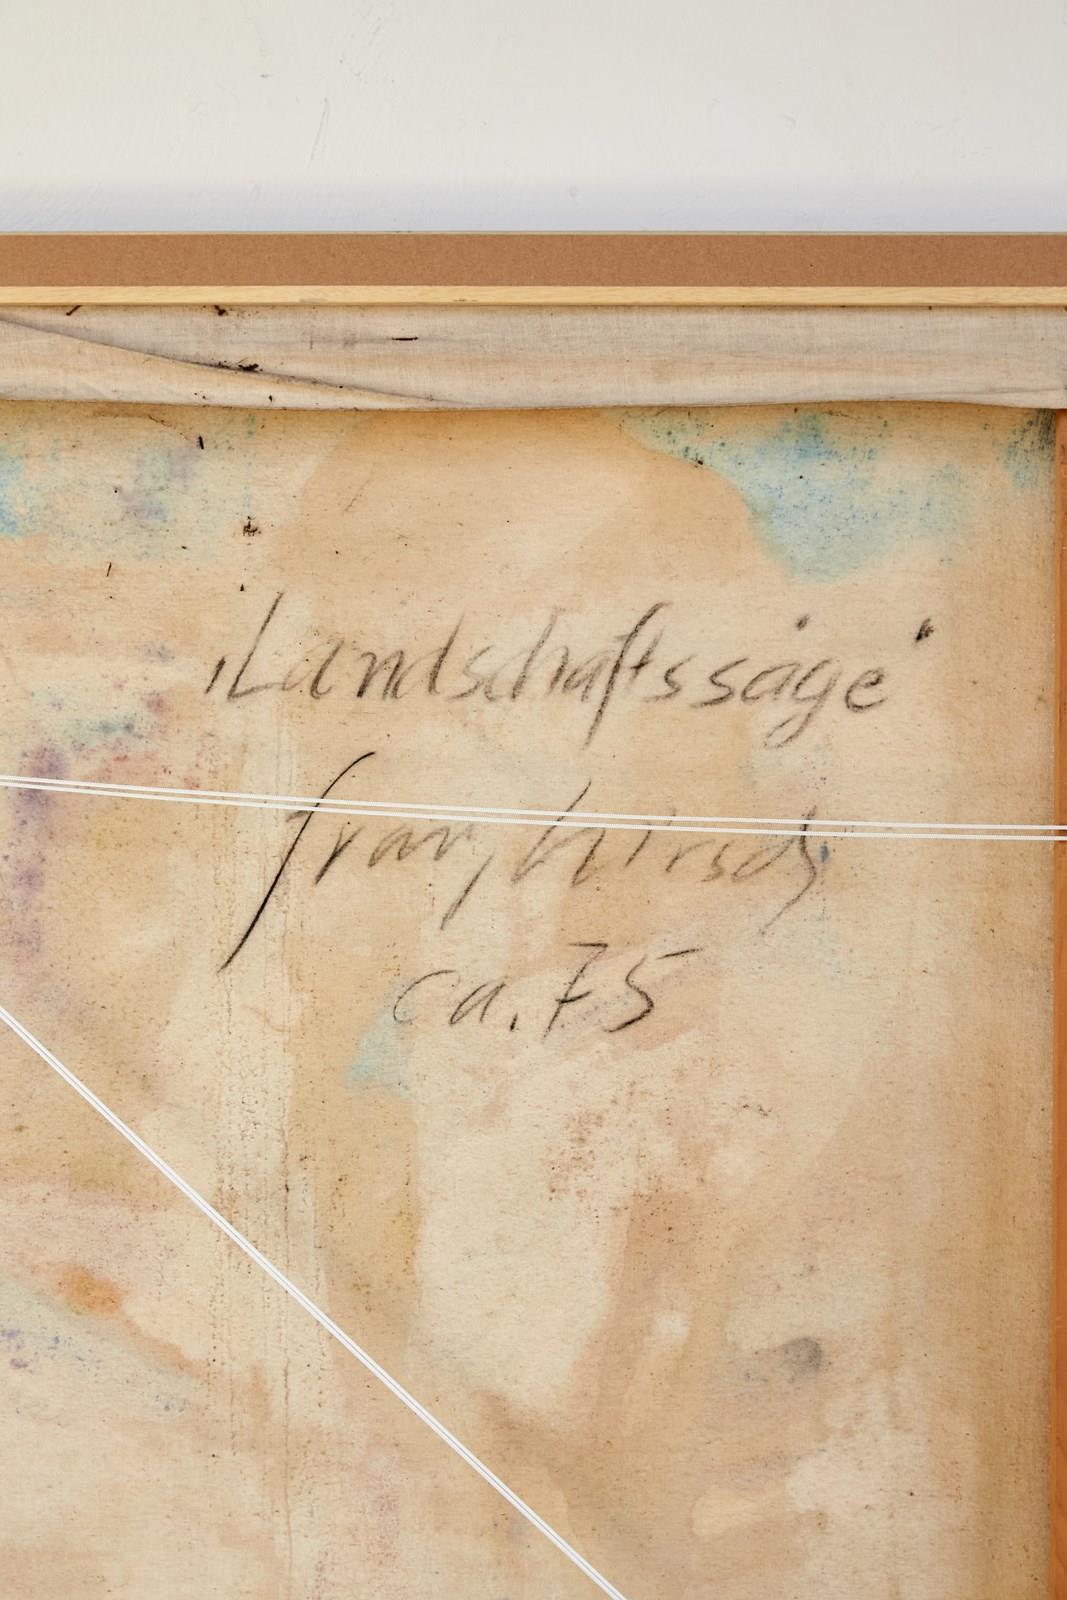 „Landschaftssäge"
franz hitzsch
ca. 75